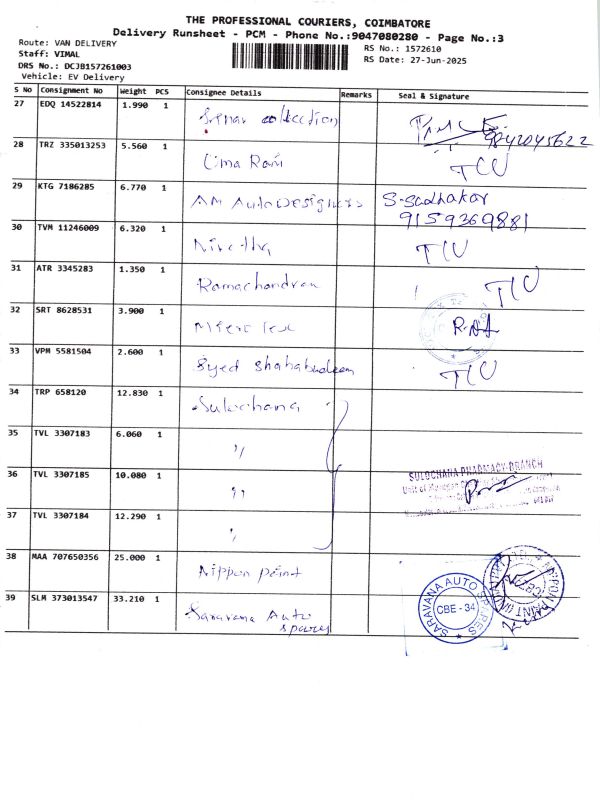 THE PROFESSIONAL COURIERS, COIMBATORE
Delivery Runsheet - PCM - Phone No.:9047080280 - Page No.:3
Route: VAN DELIVERY
RS No.: 1572610
Staff: VIMAL
RS Date: 27-Jun-2025
DRS No.: DCJB157261003
Vehicle: EV Delivery
S No Consignment No Weight PCS Consignee Details Remarks Seal & Signature
27 EDQ 14522814 1.990 1 collection 9842045622
28 TRZ 335013253 5.560 1 Uma Rani TCU
29 KTG 7186285 6.770 1 AM AutoDesigners S-Sudhakar
9159369881
30 TVM 11246009 6.320 1 Nivetha TCU
31 ATR 3345283 1.350 1 Ramachandran TCU
32 SRT 8628531 3.900 1
33 VPM 5581504 2.600 1 Syed Shahabudeen TCU
34 TRP 658120 12.830 1 Sulochana
35 TVL 3307183 6.060 1 "
36 TVL 3307185 10.080 1 "
SULOCHANA PHARMACY-BRANCH
37 TVL 3307184 12.290 1 "
38 MAA 707650356 25.000 1 Nippon paint
39 SLM 373013547 33.210 1 Saravana Auto
spares
SARAVANA AUTO SPARES
CBE - 34